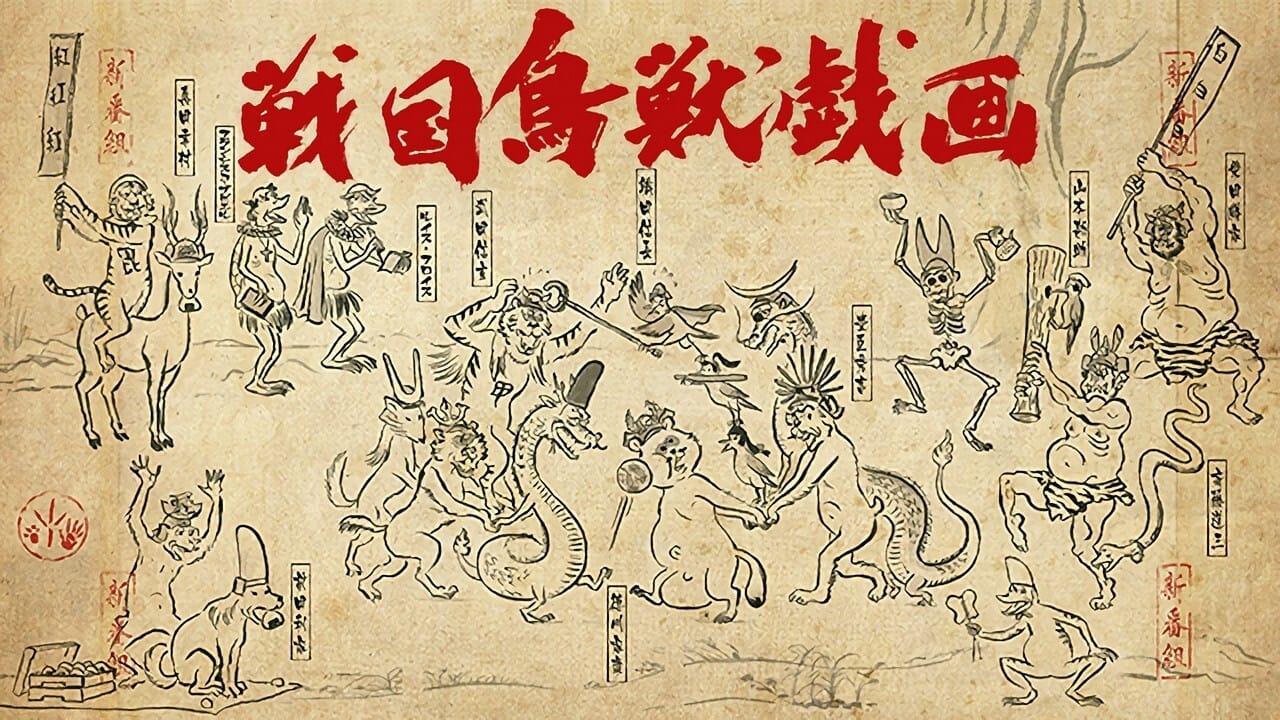 戦国鳥獣戯画
新番組
紅紅紅
真田幸村
フランシスコ・ザビエル
ルイス・フロイス
武田信玄
織田信長
豊臣秀吉
山本勘助
柴田勝家
新番組
毘
甲
斎藤道三
徳川家康
新番組
新番組